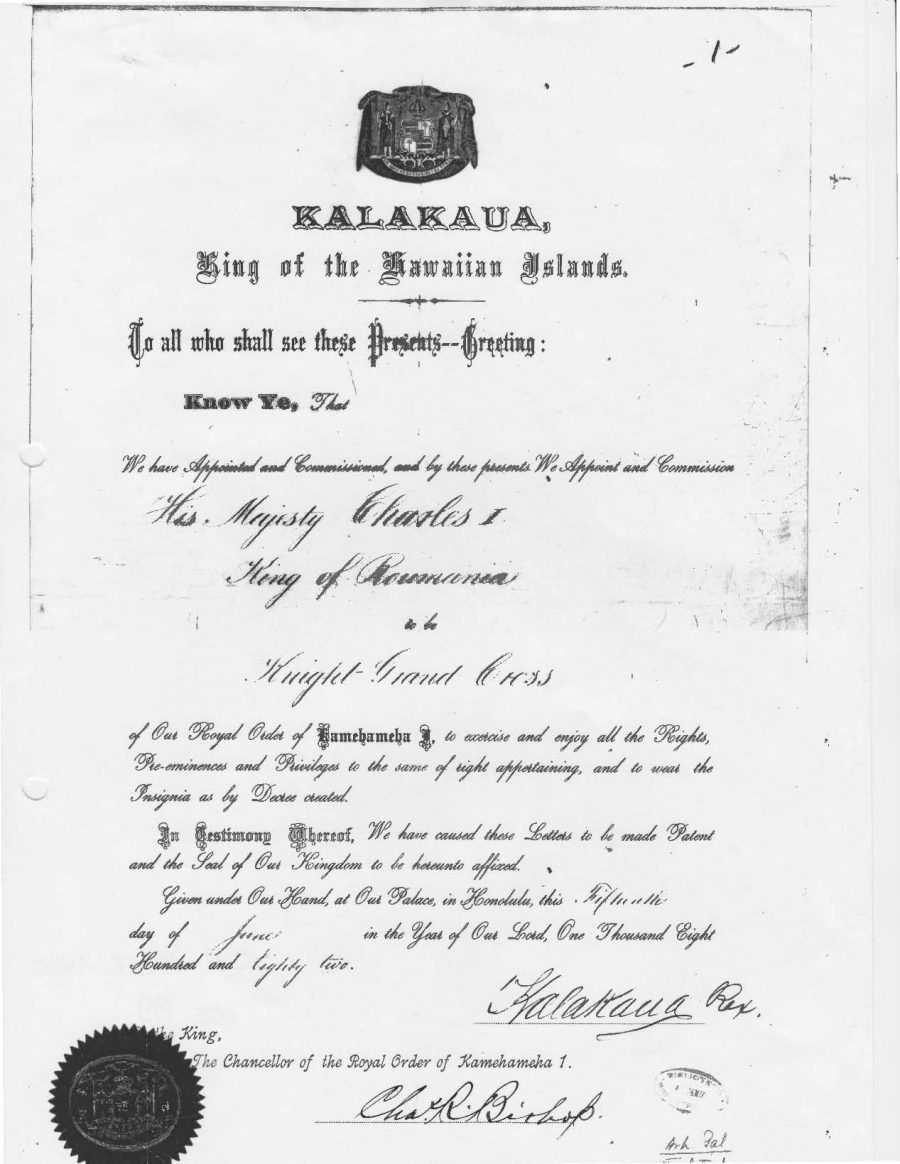 -1-
KALAKAUA,
King of the Hawaiian Islands.
To all who shall see these Presents--Greeting:
Know Ye, That
We have Appointed and Commissioned, and by these presents We Appoint and Commission
His Majesty Charles I
King of Roumania
to be
Knight Grand Cross
of Our Royal Order of Kamehameha I, to exercise and enjoy all the Rights,
Pre-eminences and Privileges to the same of right appertaining, and to wear the
Insignia as by Decree created.
In Testimony Whereof, We have caused these Letters to be made Patent
and the Seal of Our Kingdom to be hereunto affixed.
Given under Our Hand, at Our Palace, in Honolulu, this Fifteenth
day of June in the Year of Our Lord, One Thousand Eight
Hundred and Eighty two.
Kalakaua Rex.
the King,
The Chancellor of the Royal Order of Kamehameha 1.
Chas R. Bishop.